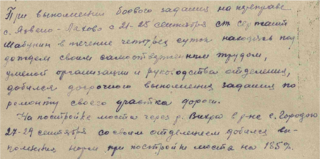 При выполнении боевого задания на переправе
с. с 21-25 сентября ст. сержант
Мабунин в течение четырех суток находясь под
дождем своим самоотверженным трудом,
умелой организации и руководства отделения,
добился досрочного выполнения задания по
ремонту своего участка дороги.
На постройке моста через р. в р-не с. Городно
28-29 сентября со своим отделением добился вы-
полнения нормы при постройке моста на 185%.